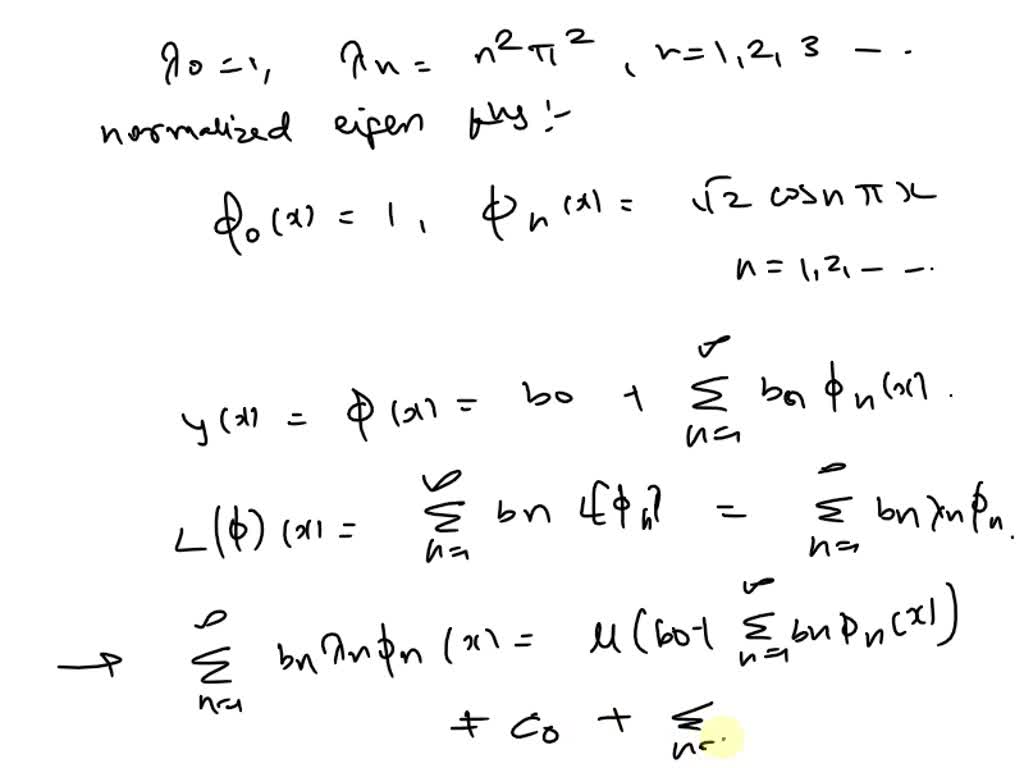 λ0 = 1, λn = n²π², n = 1, 2, 3 - - .
normalized eigen fns :-
ϕ0(x) = 1, ϕn(x) = √2 cosnπx
n = 1, 2, - - .
y(x) = ϕ(x) = b0 + ∑_{n=1}^{∞} bn ϕn(x).
L(ϕ)(x) = ∑_{n=1}^{∞} bn L[ϕn] = ∑_{n=1}^{∞} bn λn ϕn.
→ ∑_{n=1}^{∞} bn λn ϕn(x) = μ(b0 + ∑_{n=1}^{∞} bn ϕn(x))
+ c0 + ∑_{n=